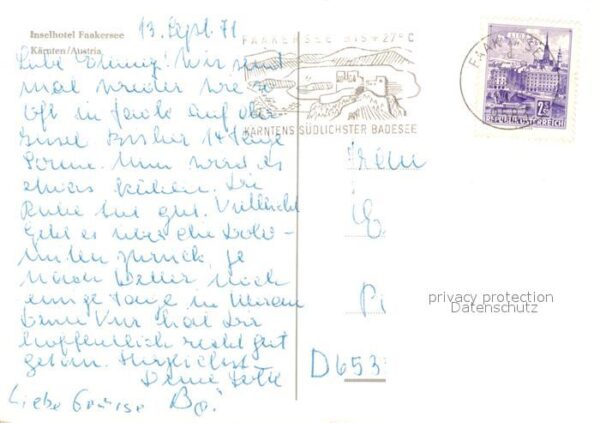 Inselhotel Faakersee
Kärnten/Austria
13. Sept. 71
Wir sind
mal wieder wie so
oft in Faak auf der
Insel. Bisher 14 Tage
Sonne. Nun wird es
etwas kühler. Die
Ruhe tut gut. Vielleicht
geht es über die Dolo-
miten zurück, je
nach Wetter noch
einige Tage in Meran
Deine Kur hat Dir
hoffentlich recht gut
getan. Herzlichst
Deine
Liebe Grüsse Bo.
FAAKERSEE BIS +27°C
KÄRNTENS SÜDLICHSTER BADESEE
FAAK
REPUBLIK ÖSTERREICH
Frau
Pi
D 653
privacy protection
Datenschutz